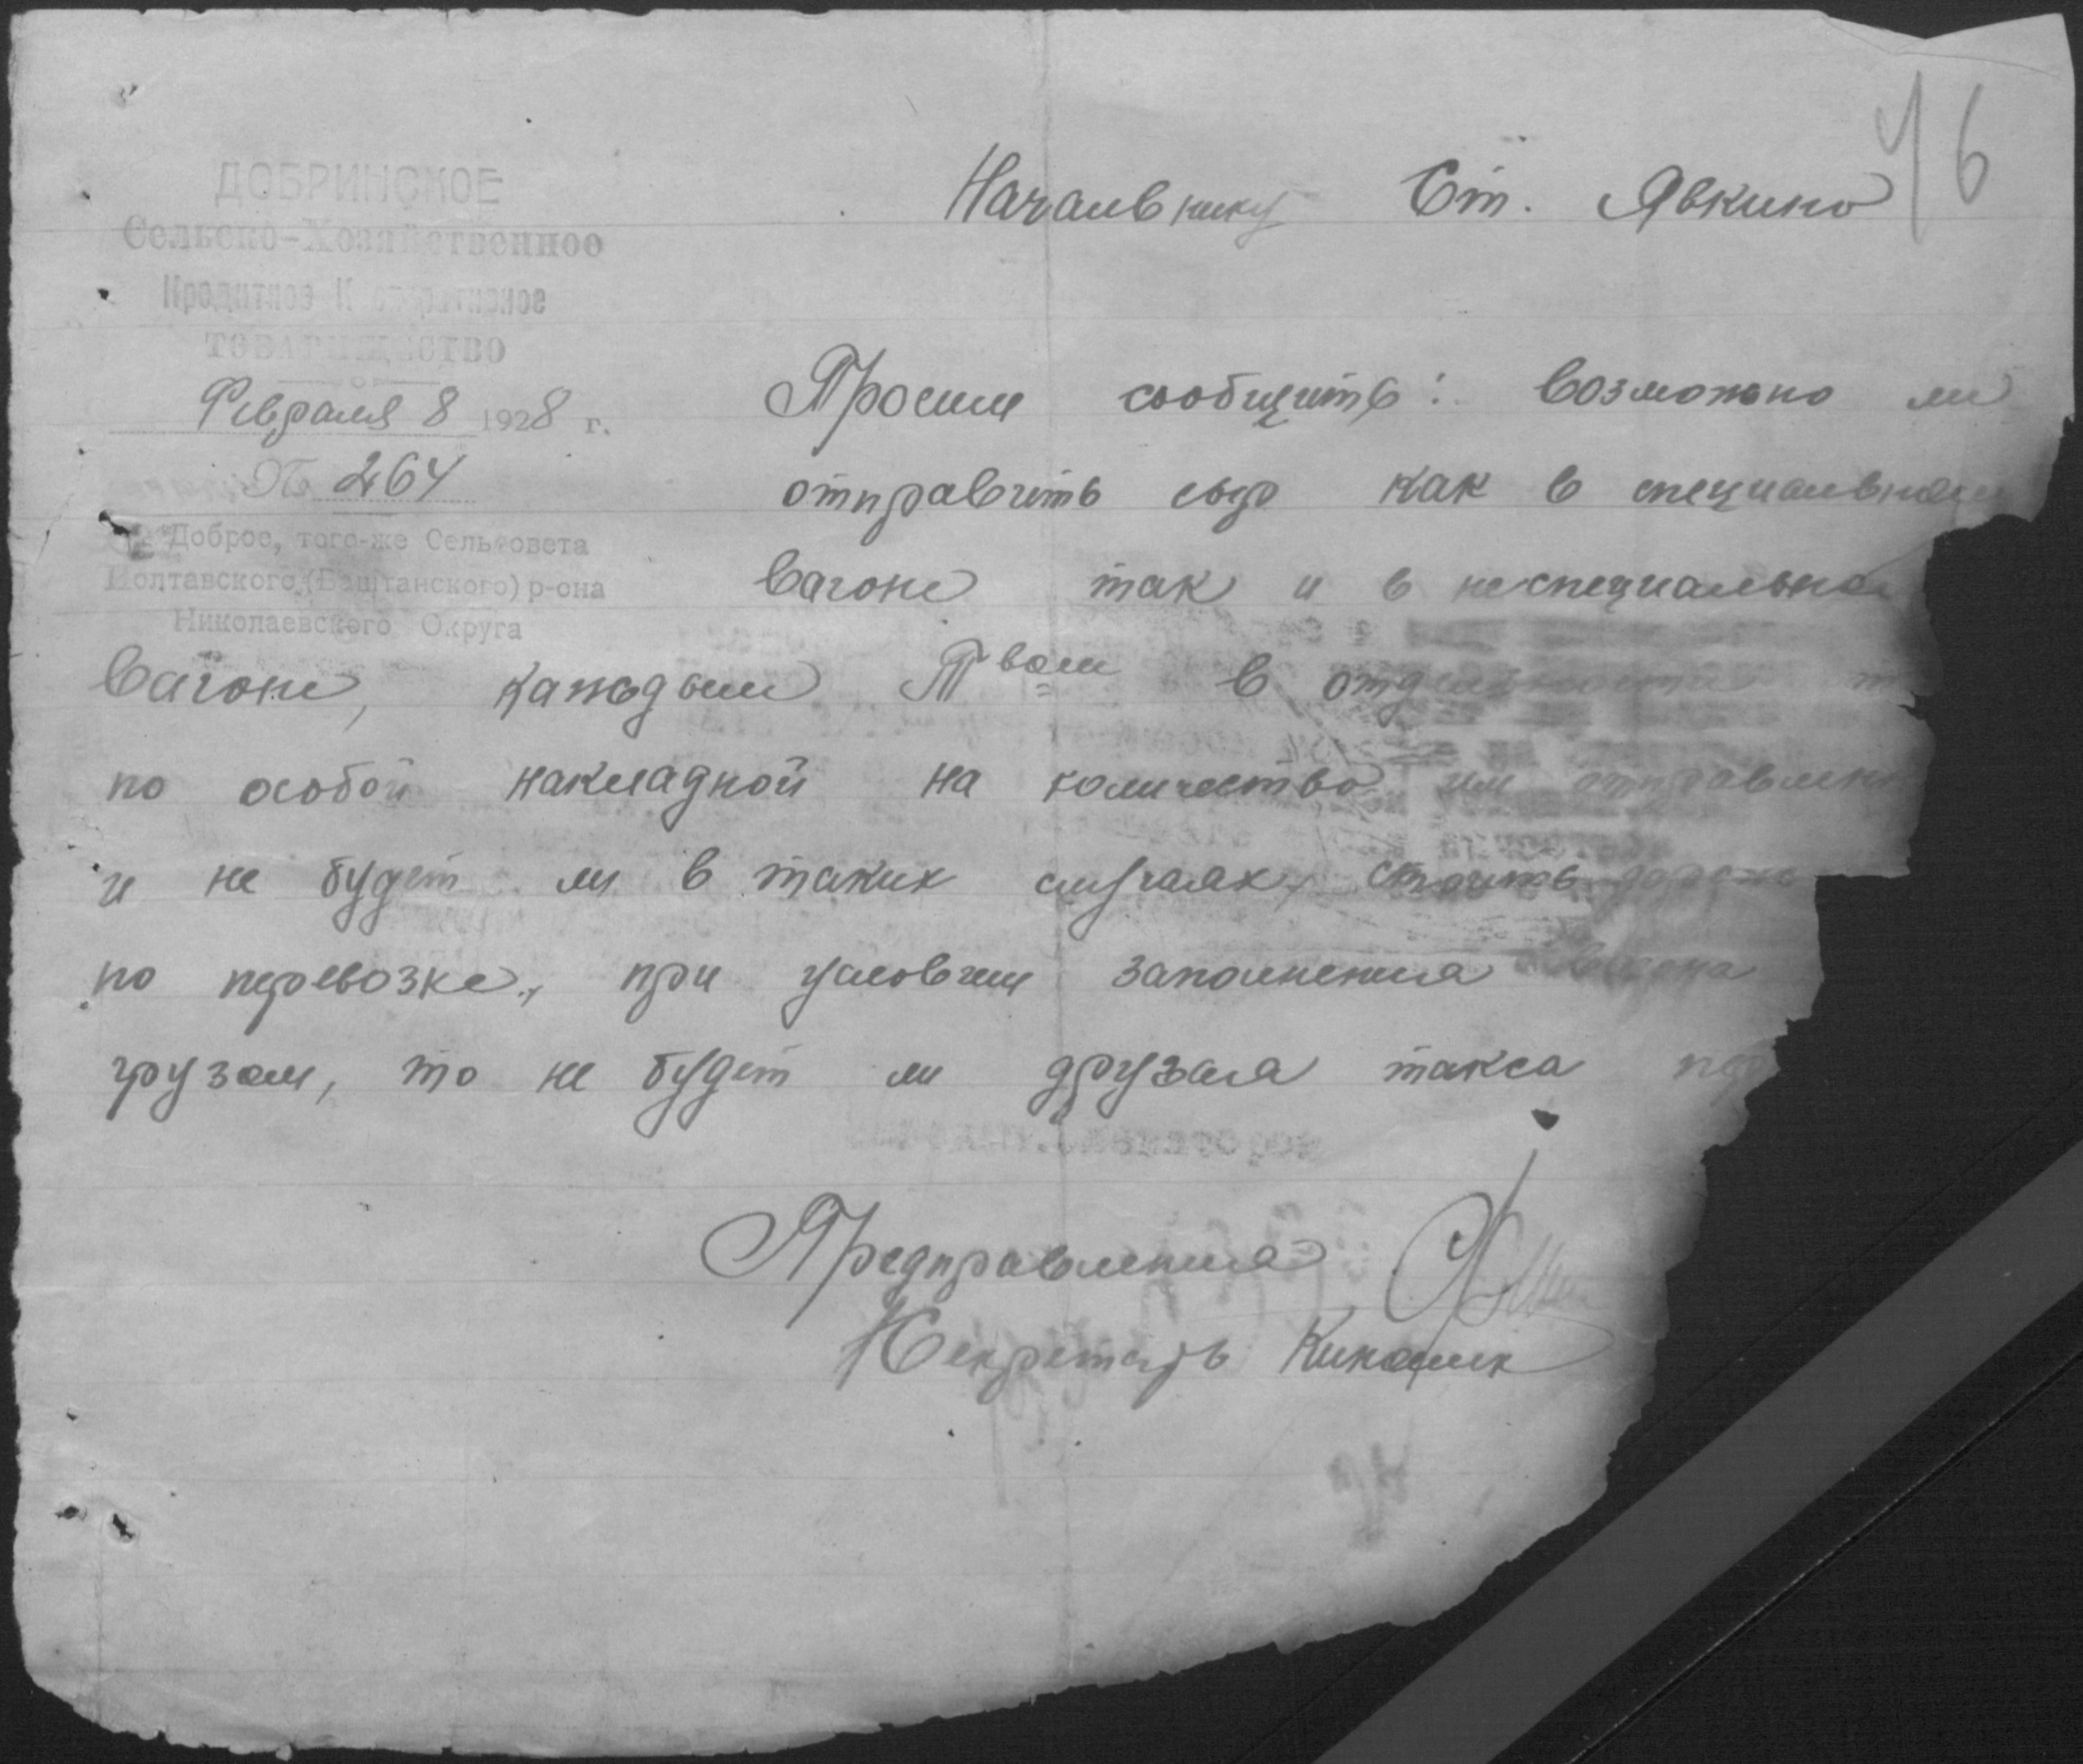 46
Начальнику Ст. Явкино
ДОБРИНСКОЕ
Сельско-Хозяйственное
Кредитное Кооперативное
ТОВАРИЩЕСТВО
Февраля 8 1928 г.
№ 264
Доброе, того-же Сельсовета
Полтавского (Баштанского) р-она
Николаевского Округа
Просим сообщить: возможно ли
отправить сыр как в специальном
вагоне так и в неспециально
вагоне, каждым Твом в отдельности
по особой накладной на количество им отправлен
и не будет ли в таких случаях, стоить дороже
по перевозке, при условии заполнения вагона
грузом, то не будет ли другая такса пер
Предправления
Секретарь